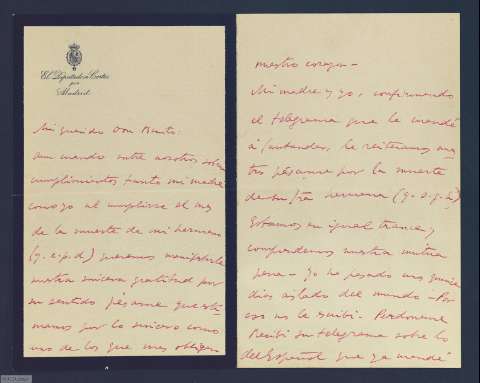 El Diputado a Cortes
por
Madrid
Mi querido Don Benito:
aun cuando entre nosotros sobran
cumplimientos tanto mi madre
como yo al cumplirse el mes
de la muerte de mi hermano
(q. e. p. d) queremos manifestarle
nuestra sincera gratitud por
su sentido pésame que esti-
mamos por lo sincero como
uno de los que mas obligan
nuestro corazon –
Mi madre y yo, confirmando
el telegrama que le mandé
á Santander, le reiteramos nues-
tro pésame por la muerte
de su hermana (q. s. g. h)
Estamos en igual trance y
comprendemos nuestra mutua
pena – Yo he pasado unos quince
dias aislado del mundo – Por
eso no le escribí – Perdoneme
Recibí su telegrama sobre lo
del Español que ya mandé